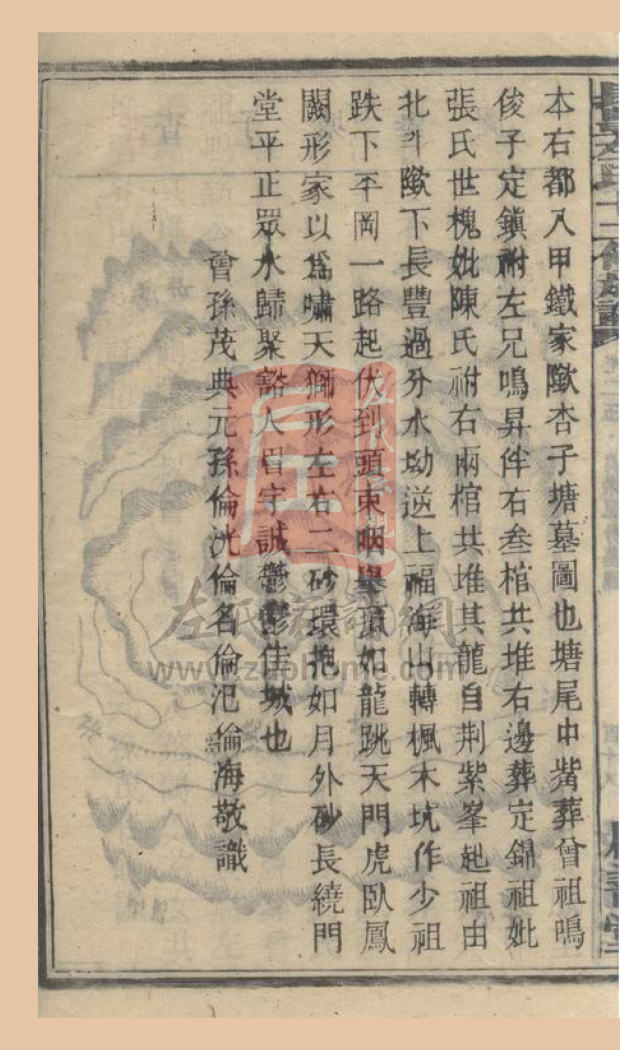 本右都入甲鐵家隞杏子塘墓圖也塘尾中嘴葬曾祖鳴
俊子定鎮祔左兄鳴昇伴右叁棺共堆右邊葬定錦祖妣
張氏世槐妣陳氏祔右兩棺共堆其龍自荆紫峯起祖由
北斗隞下長豐過分水坳逆上福海山轉楓木坑作少祖
跌下平岡一路起伏到頭束咽舉頂如龍跳天門虎臥鳳
闕形家以爲嘯天獅形左右二砂環抱如月外砂長繞門
堂平正眾水歸聚豁人眉宇誠鬱鬱佳城也
曾孫茂典元孫倫洸倫名倫汜倫海敬識
左氏尋譜網
www.czuohome.com